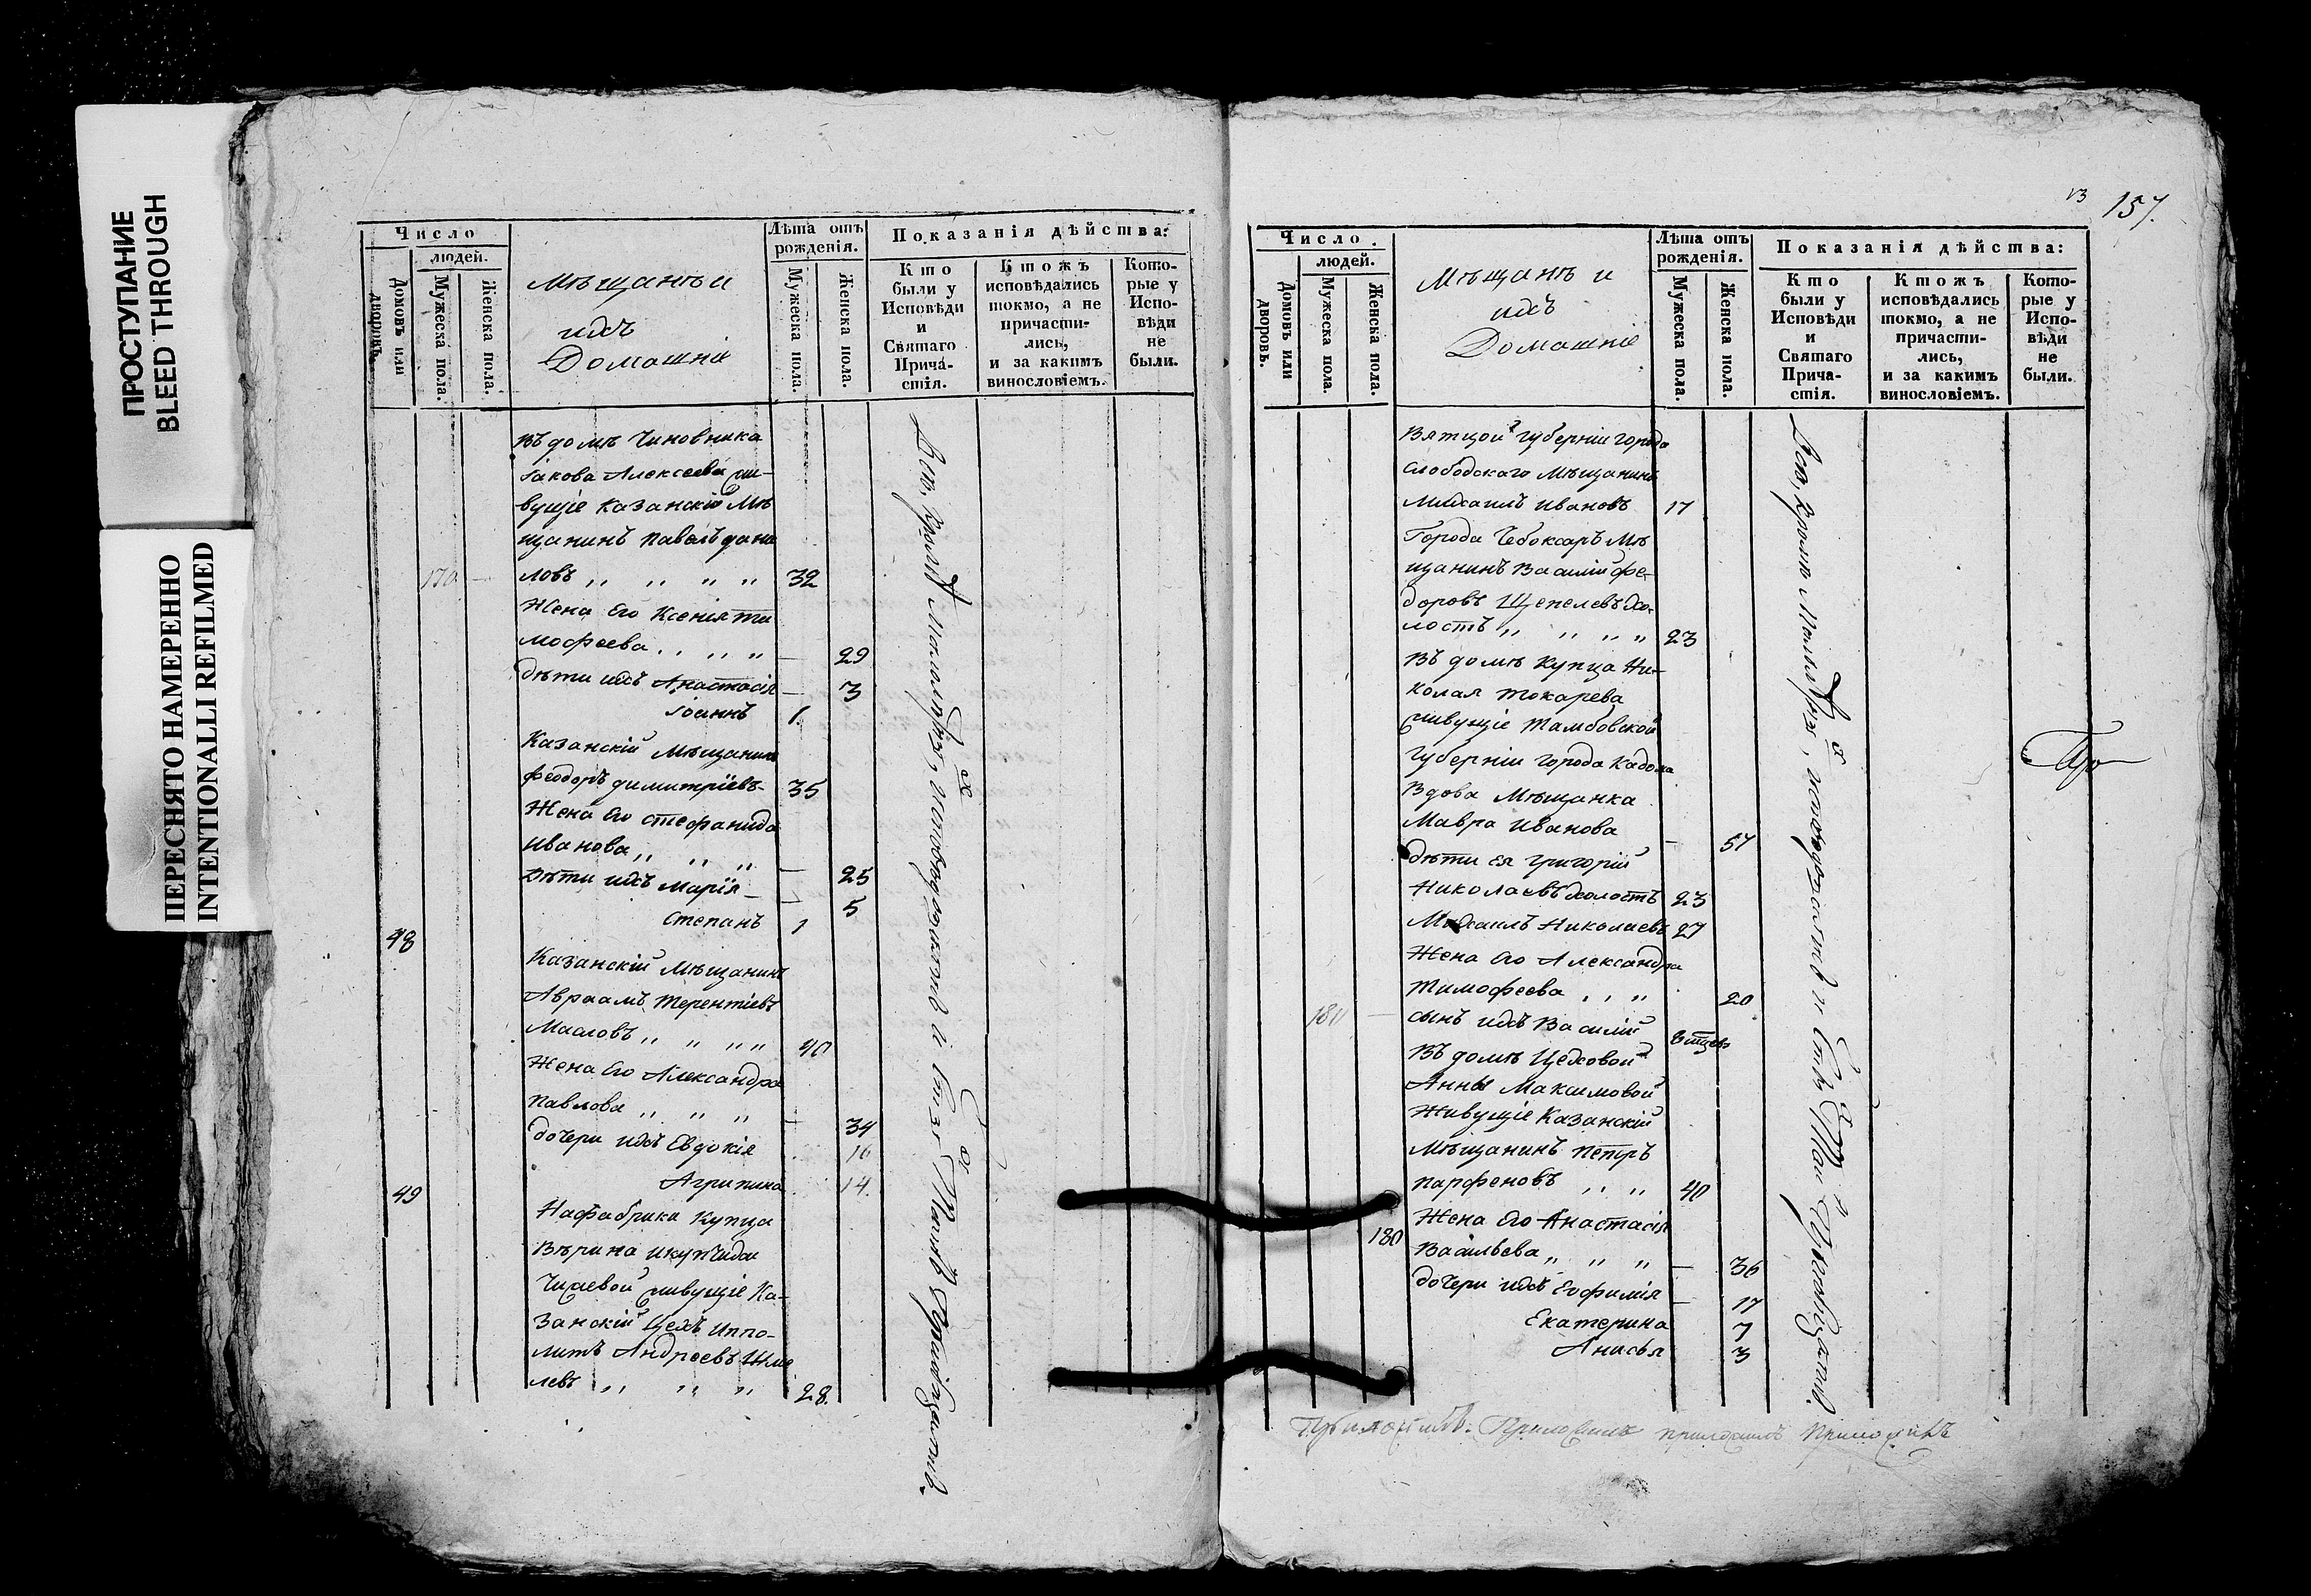 ПРОСТУПАНИЕ
BLEED THROUGH
ПЕРЕСНЯТО НАМЕРЕННО
INTENTIONALLI REFILMED
Число
людей.
Домовъ или дворовъ.
Мужеска пола.
Женска пола.
Мѣщанѣ и
ихъ
Домашніе
Лѣта отъ рожденія.
Мужеска пола.
Женска пола.
Показанія дѣйства:
Кто были у Исповѣди и Святаго Причастія.
Ктожъ исповѣдались токмо, а не причастились, и за какимъ винословіемъ.
Которые у Исповѣди не были.
Въ домѣ Чиновника
Іакова Алексеева жи-
вущіе Казанскій Мѣ
щанинъ Павелъ Дани
170 — ловъ ,, ,, ,, ,, 32
Жена Его Ксенія Ти
мофеева ,, ,, ,, — 29
Дѣти ихъ Анастасія — 3
Іоаннъ 1
Казанскій Мѣщанинъ
Феодоръ Димитріевъ 35
Жена Его Стефанида
Иванова ,, ,, ,, — 25
Дѣти ихъ Марія — 5
Степанъ 1
48
Казанскій Мѣщанинъ
Авраамъ Терентіевъ
Масловъ ,, ,, ,, ,, 40
Жена Его Александра
Павлова ,, ,, ,, — 34
Дочери ихъ Евдокія 16
Агрипина 14.
49
На фабрики Купца
Вѣрина и купчихи
Чижевой живущіе Ка-
занскій Цехъ Иппо-
литъ Андреевъ
левъ ,, ,, ,, 28.
13 157.
Число
людей.
Домовъ или дворовъ.
Мужеска пола.
Женска пола.
Мѣщанѣ и
ихъ
Домашніе
Лѣта отъ рожденія.
Мужеска пола.
Женска пола.
Показанія дѣйства:
Кто были у Исповѣди и Святаго Причастія.
Ктожъ исповѣдались токмо, а не причастились, и за какимъ винословіемъ.
Которые у Исповѣди не были.
Вятцой Губерніи города
Слободскаго Мѣщанинъ
Михаилъ Ивановъ 17
Города Чебоксаръ Мѣ
щанинъ Василій Фе-
доровъ Щепелевъ хо-
лостъ ,, ,, ,, ,, 23
Въ домѣ Купца Ни-
колая Токарева
живущіе Тамбовской
Губерніи города Кадома
Вдова Мѣщанка
Мавра Иванова — 57
Дѣти ея Григорій
Николаевъ холостъ 23
Михаилъ Николаевъ 27
Жена Его Александра
Тимофеева ,, ,, 20
Сынъ ихъ Василій
Въ домѣ Цеховой
Анны Максимовой
Живущіе Казанскій
Мѣщанинъ Петръ
Парфеновъ ,, ,, 40
Жена Его Анастасія
180 Васильева ,, ,, ,, — 36
Дочери ихъ Евфимія — 17
Екатерина 7
Анисья 3